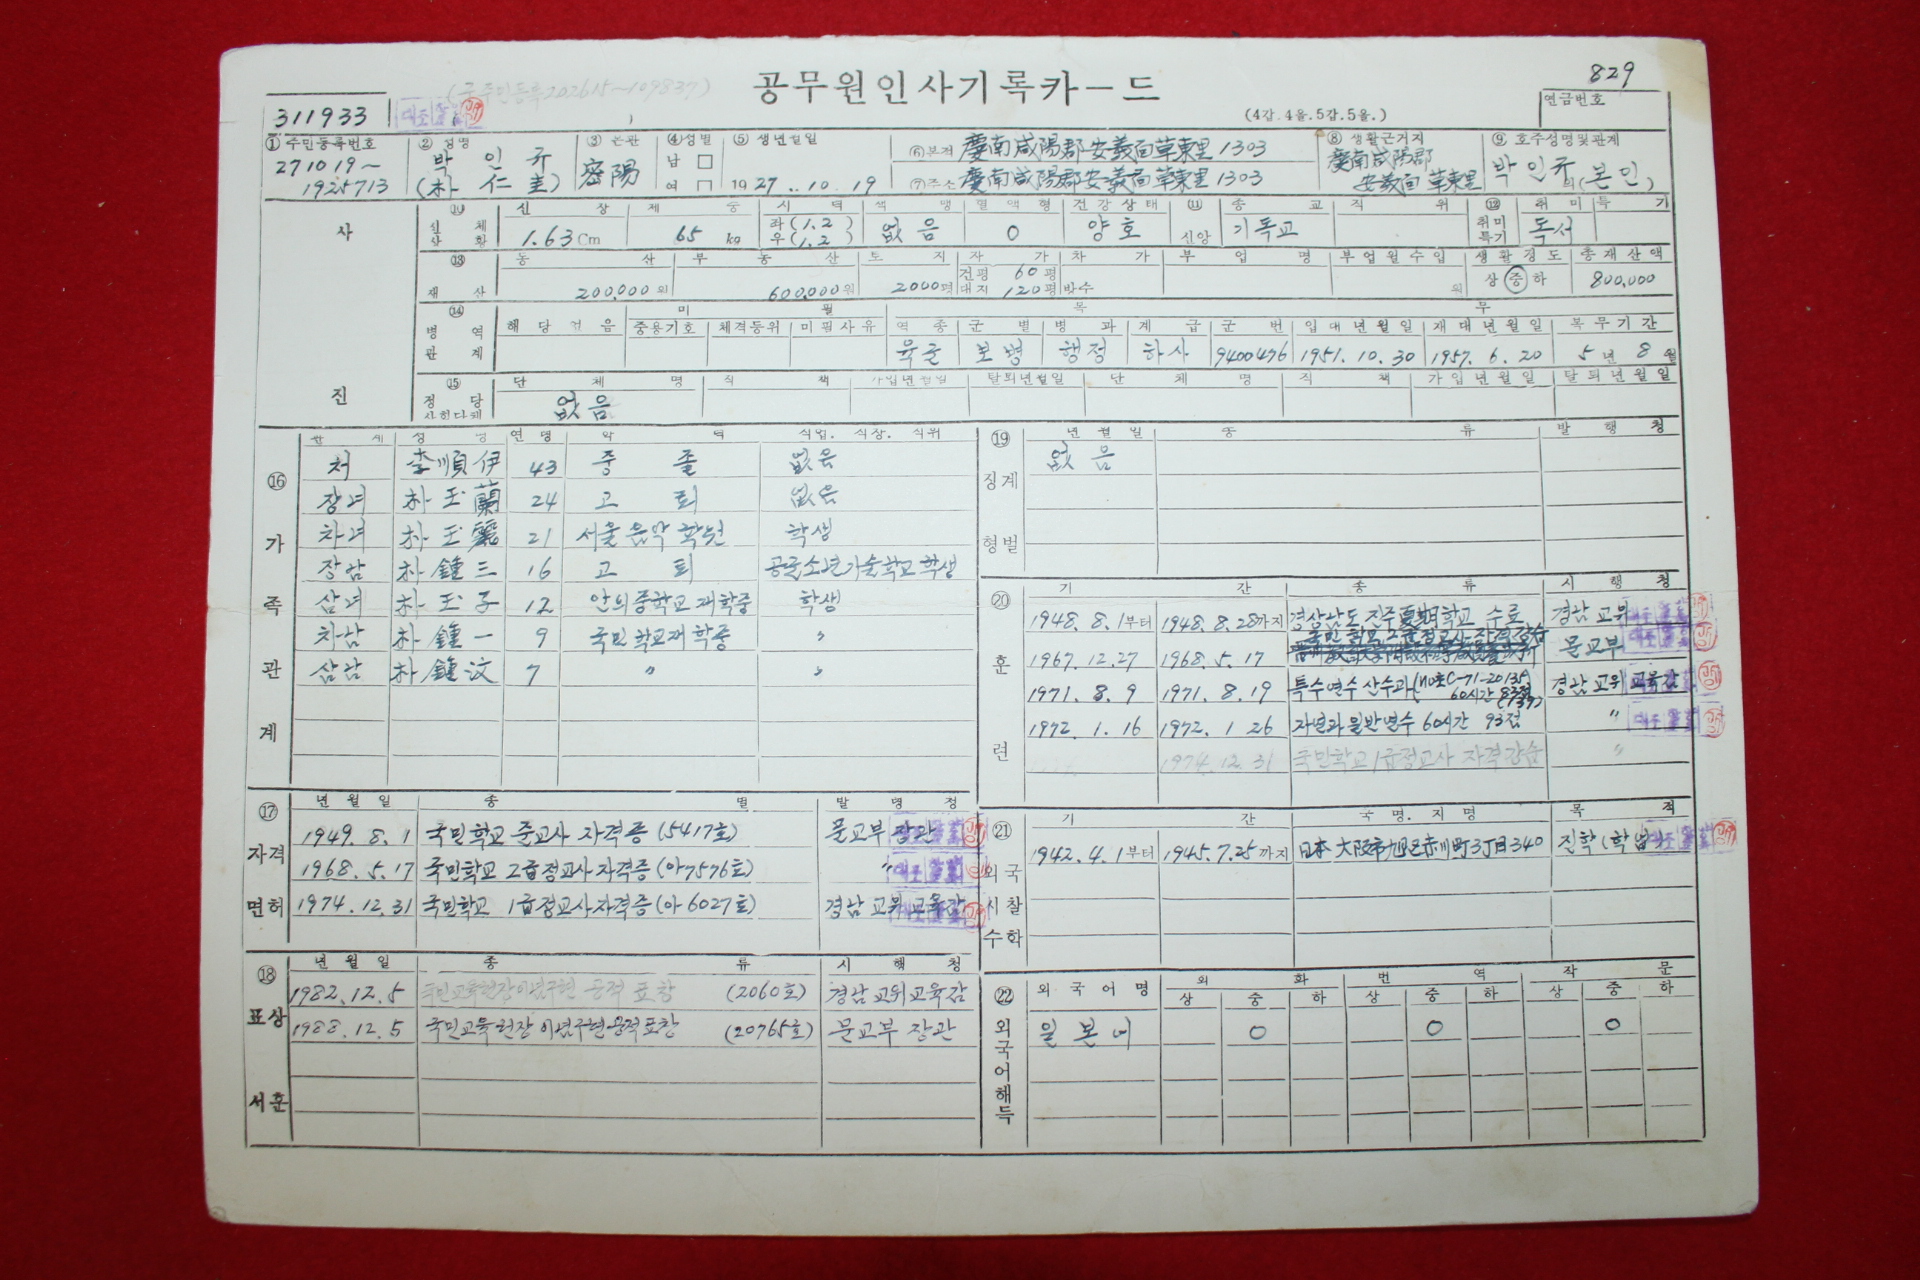 829
공무원인사기록카ー드
(4갑.4을.5갑.5을.)
연금번호
311933
① 주민등록번호 ② 성명 ③ 본관 ④ 성별 ⑤ 생년월일
271019~
1925713
박 인 규
(朴 仁 圭)
密陽
남 □
여 □
1927. 10. 19
⑥본적 慶南咸陽郡安義面草東里 1303
⑦주소 慶南咸陽郡安義面草東里 1303
⑧ 생활근거지
慶南咸陽郡
安義面 草東里
⑨ 호주성명및관계
박인규의(본인)
사
진
⑩ 신체상황 신장 체중 시력 색맹 혈액형 건강상태 ⑪ 종교 직위 ⑫ 취미 특기
1.63Cm 65 kg 좌(1.2) 우(1.2) 없음 O 양호 신앙 기독교 취미특기 독서
⑬ 재산 동산 부동산 토지 자가 차가 부업명 부업월수입 생활정도 총재산액
200,000원 600,000원 2000평 건평 60평 대지 120평 방수 원 상 중 하 800,000
⑭ 병역관계 해당없음 미필 복무
징용기호 체격등위 미필사유 역종 군별 병과 계급 군번 입대년월일 재대년월일 복무기간
육군 보병 행정 하사 9400476 1951. 10. 30 1957. 6. 20 5년 8월
⑮ 정당사회단체 단체명 직책 가입년월일 탈퇴년월일 단체명 직책 가입년월일 탈퇴년월일
없음
⑯ 가족관계
관계 성명 연령 학력 직업. 직장. 직위
처 李順伊 43 중졸 없음
장녀 朴玉蘭 24 고퇴 없음
차녀 朴玉 21 서울음악학원 학생
장남 朴鍾三 16 고퇴 공군소년기술학교학생
삼녀 朴玉子 12 안의중학교 재학중 학생
차남 朴鍾一 9 국민학교재학중 〃
삼남 朴鍾汶 7 〃 〃
⑰ 자격면허
년월일 종별 발령청
1949. 8. 1 국민학교 준교사 자격증 (5417호) 문교부 장관
1968. 5. 17 국민학교 2급정교사자격증 (아7576호) 〃
1974. 12. 31 국민학교 1급정교사자격증 (아6027호) 경남교위교육감
⑱ 표상서훈
년월일 종류 시행청
1982. 12. 5 국민교육헌장이념구현 공적 표창 (2060호) 경남교위교육감
1988. 12. 5 국민교육헌장이념구현공적표창 (20765호) 문교부 장관
⑲ 징계형벌
년월일 종류 발행청
없음
⑳ 훈련
기간 종류 시행청
1948. 8. 1부터 1948. 8. 28까지 경상남도 진주夏期학교 수료 경남교위
1967. 12. 27 1968. 5. 17 국민학교 2급정교사 자격강습 문교부
1971. 8. 9 1971. 8. 19 특수연수 산수과 60시간 경남교위 교육감
1972. 1. 16 1972. 1. 26 자연과 일반연수 60시간 93점 〃
1974. 12. 31 국민학교 1급정교사 자격강습 〃
㉑ 외국시찰수학
기간 국명. 지명 목적
1942. 4. 1부터 1945. 7. 25까지 日本 大阪市旭区赤川町3丁目340 진학
㉒ 외국어해득
외국어명 회화 번역 작문
상 중 하 상 중 하 상 중 하
일본어 O O O